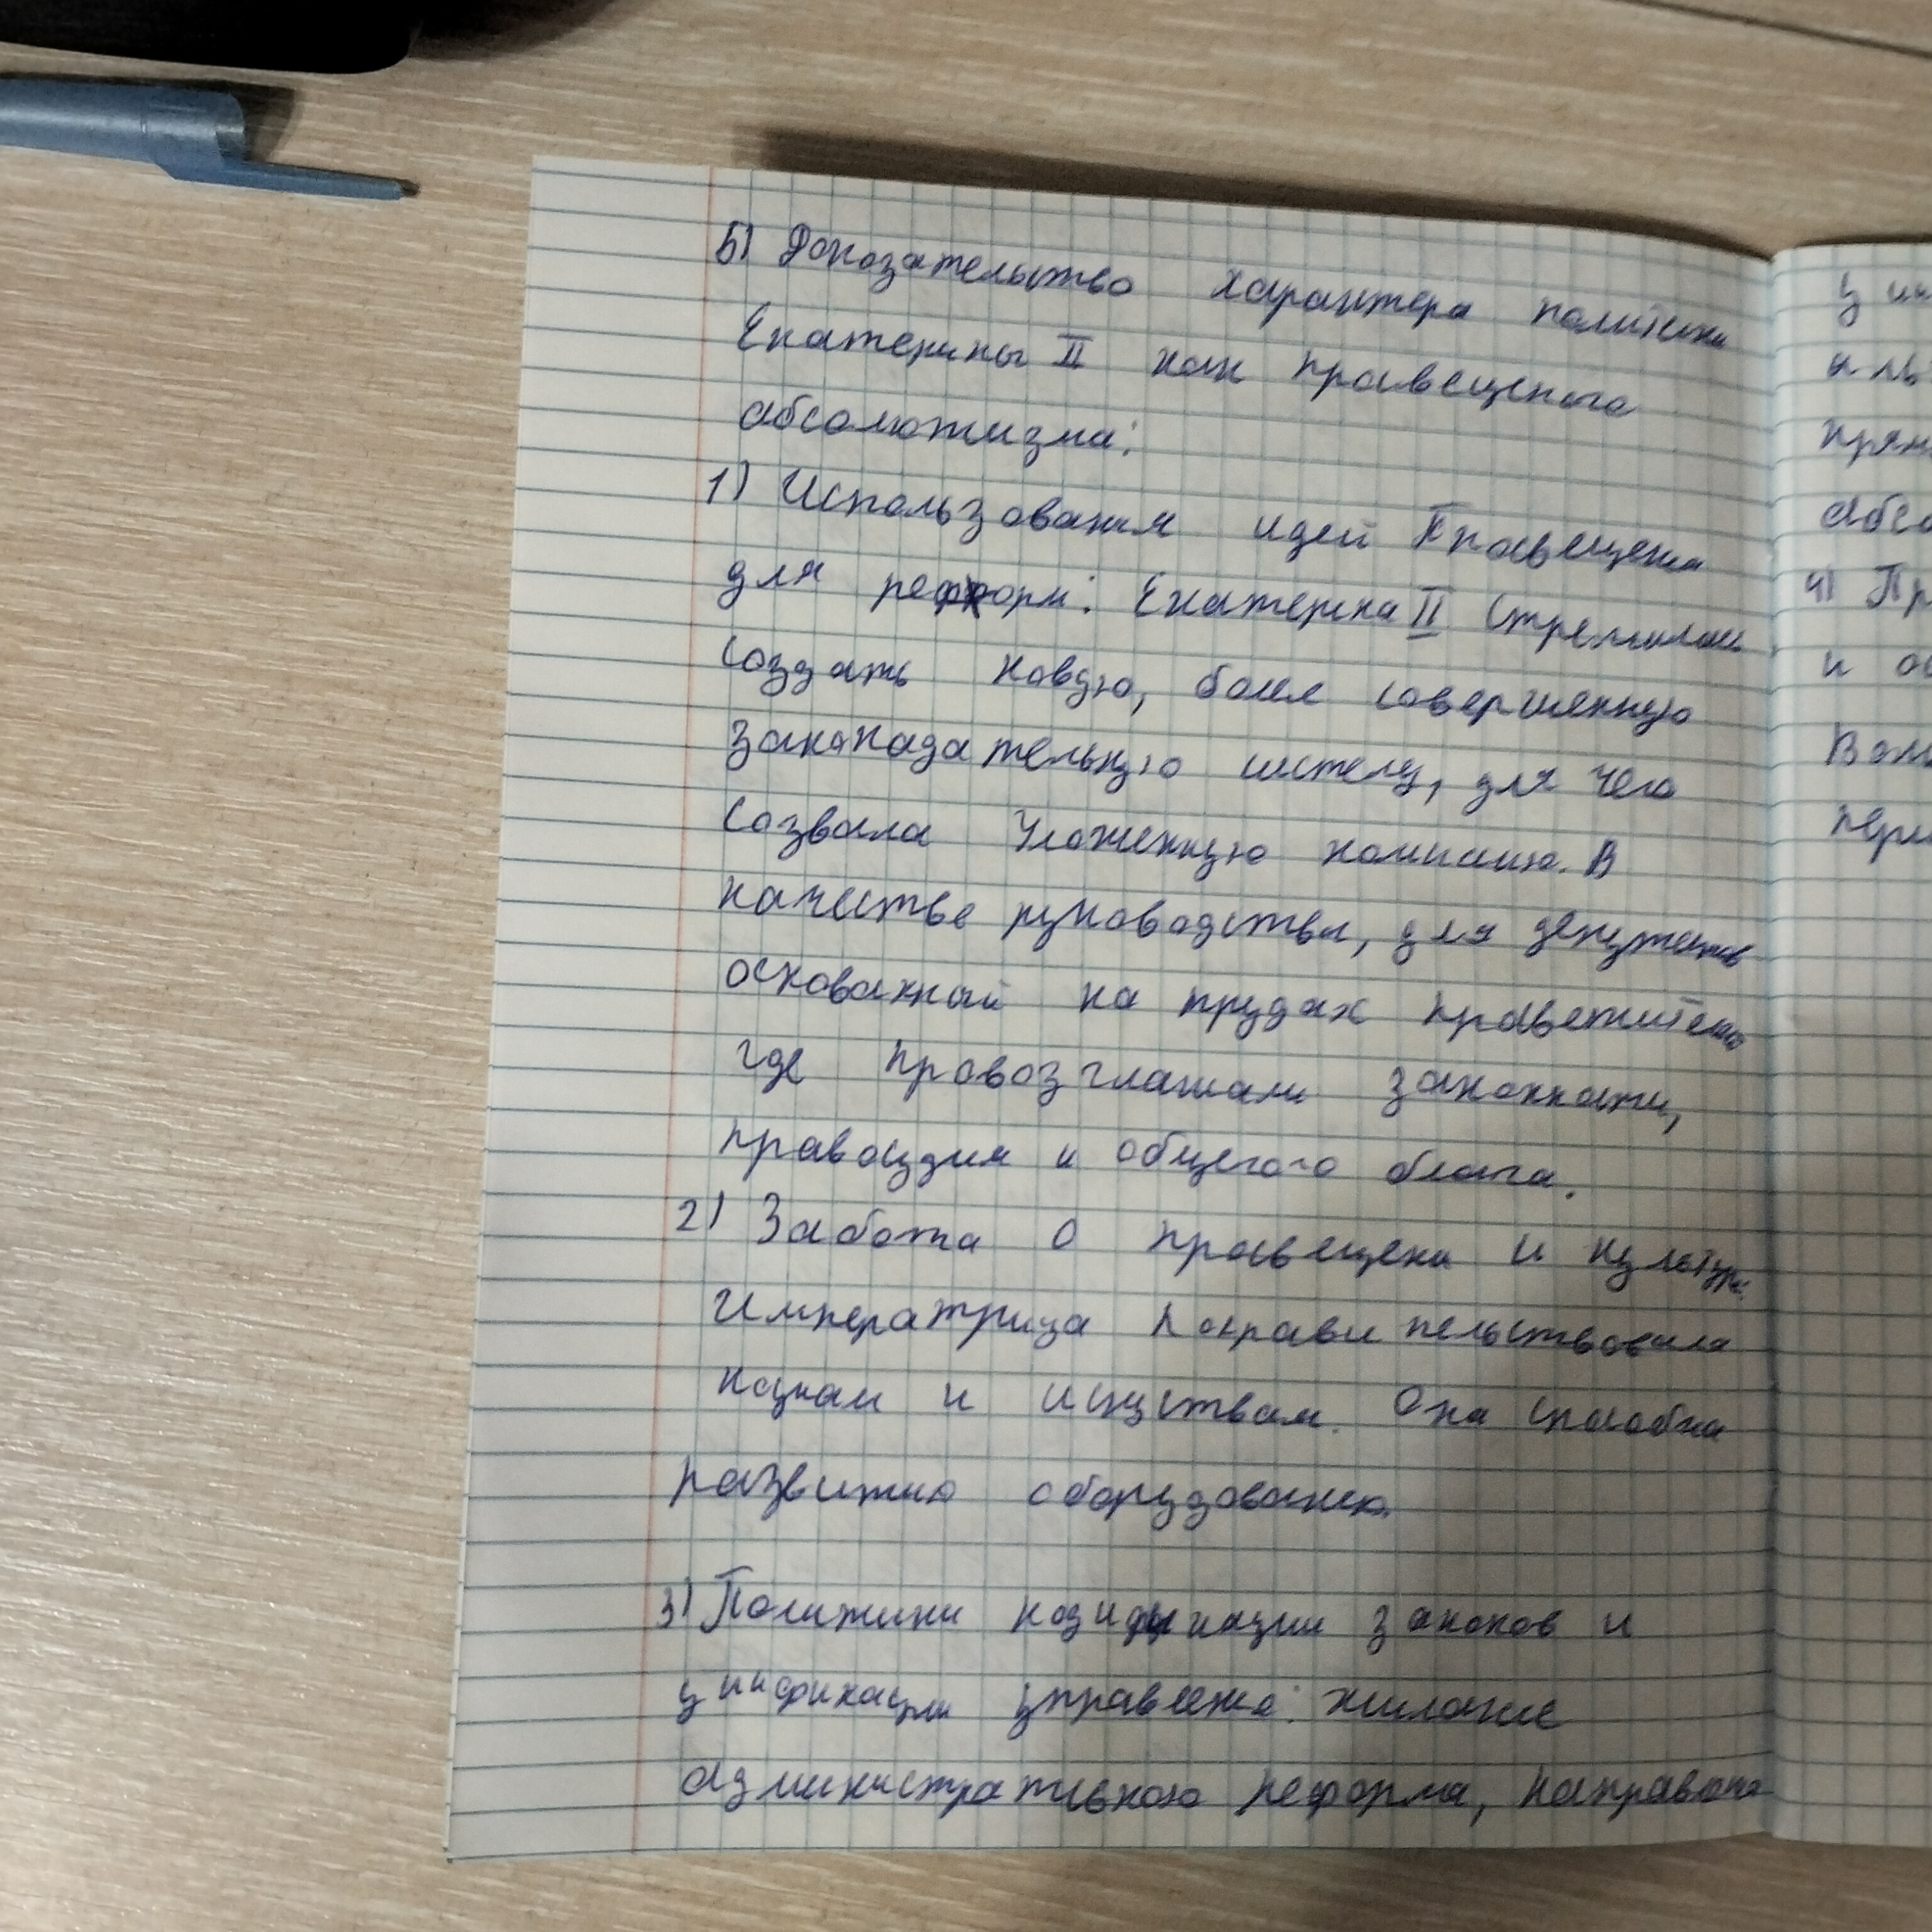 Б) Доказательство характера политики
Екатерины II как правещеного
абсолютизма:
1) Использования идей Правещения
для реформ: Екатерина II стремилась
создать новую, более совершенную
законадательную систему, для чего
созвала Уложенную комисию. В
качестве руководства, для депутатов
основанный на трудах
где провозглашали законности,
правосудия и общего блага.
2) Забота о правещени и культуре
Императрица
наукам и искуствам. Она способна
развитию оборудованию.
3) Политики кодификации законов и
унификации управления:
административною реформа,
у
и
абсо
4) Пр
и ос